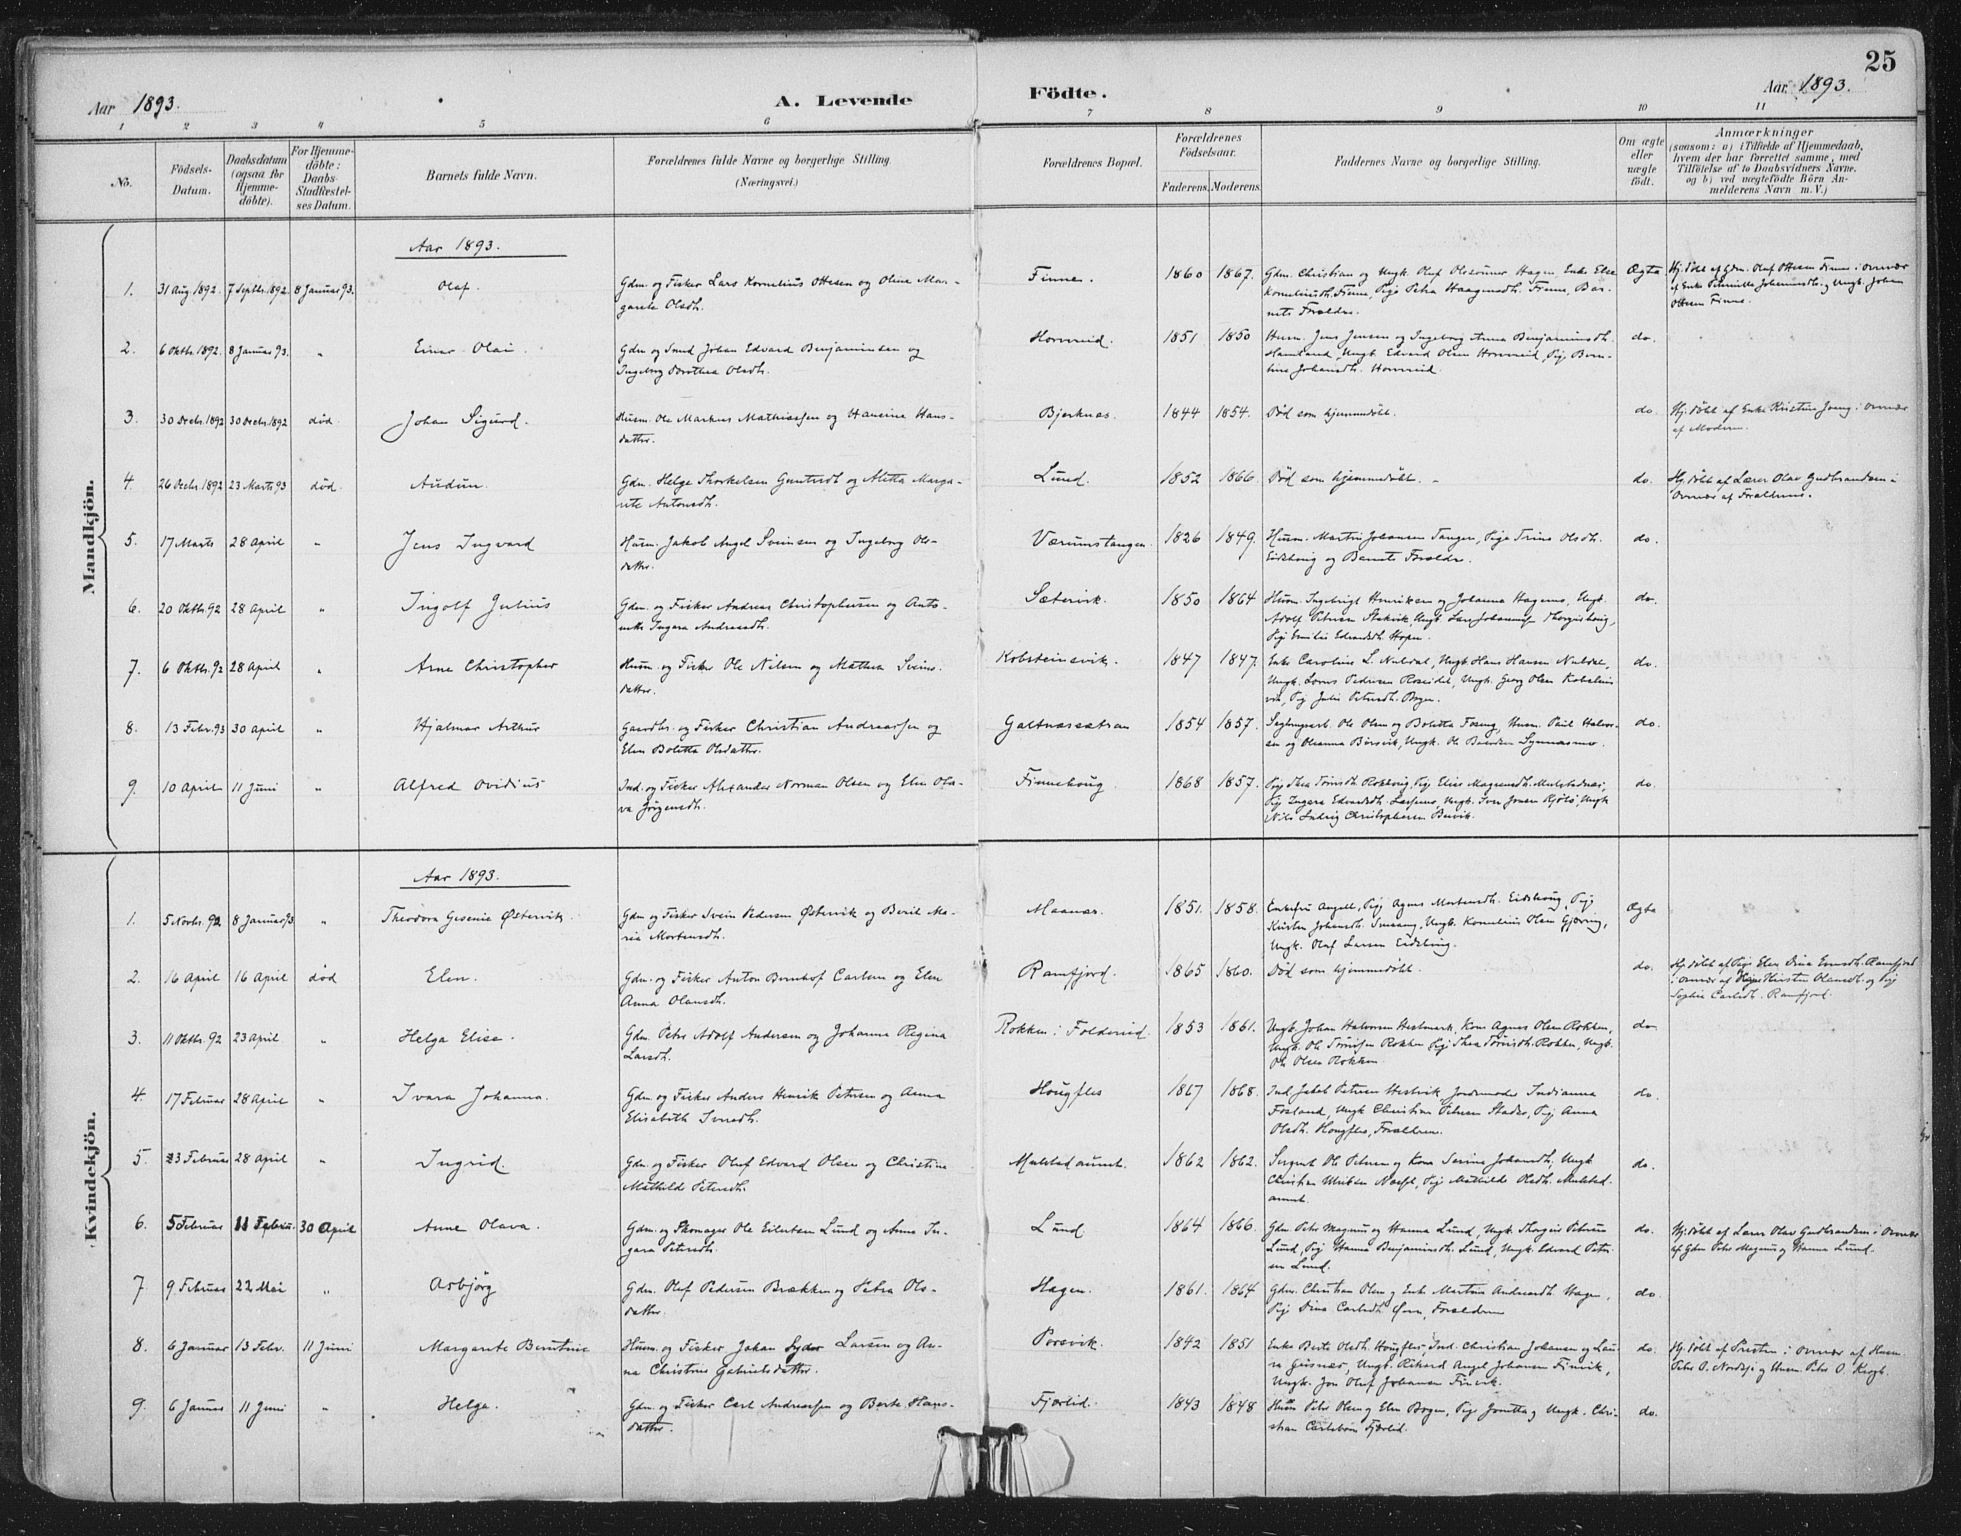 25
Aar 1893.
A. Levende Födte.
Aar 1893.
1 2 3 4 5 6 7 8 9 10 11
No.
Födsels-Datum.
Daabsdatum (ogsaa for Hjemme-döbte).
For Hjemme-döbte: Daabs-Stadfæstel-ses Datum.
Barnets fulde Navn.
Forældrenes fulde Navne og borgerlige Stilling. (Næringsvei.)
Forældrenes Bopæl.
Forældrenes Födselsaar.
Faderens. Moderens.
Faddernes Navne og borgerlige Stilling.
Om ægte eller uægte födt.
Anmærkninger
(saasom: a) i Tilfælde af Hjemmedaab,
hvem der har forrettet samme, med
Tilföielse af to Daabsvidners Navne.
og b) ved uægtefödte Börn An-
melderens Navn m. V.)
Mandkjön.
Aar 1893.
1. 31 Aug 1892. 7 Septbr 1892 8 Januar 93. Olaf. Gdm. og Fisker Lars Kornelius Ottesen og Oline Mar-
garete Olsdh. Finne. 1860 1867. Gdm. Christian og Ungk. Oluf Olsönner Hagen, Enke Else
Korneliusdh. Finne, Pige Petra Haagensdh. Finne, Bar-
nets Forældre. Ægte Hj. döbt af Gdm. Olaf Ottesen Finne i overvær
af Enke Pernille Johannesdh. og Ungk. Johan
Ottesen Finne.
2. 6 Oktbr. 1892. 8 Januar 93. " Einar Olai. Gdm og Smed Johan Edvard Benjaminsen og
Ingeborg Dorothea Olsdh. Hornreid. 1851 1850 Husm. Jens Jensen og Ingeborg Anna Benjaminsdh.
Hamland, Ungk. Edvard Olsen Hornreid, Pig.
Johansdh. Hornreid. do.
3. 30 Decbr. 1892 30 Decbr. 1892 död. Johan Sigurd. Husm. Ole Markus Mathiassen og Hansine Hans-
datter. Bjerknes. 1844 1854. Död som hjemmedöbt. do. Hj. döbt af Enke Kristine i overvær
af Moderen.
4. 26 Decbr. 1892 23 Marts 93 död. Audun. Gdm. Helge Thorkelsen og Aletta Marga-
rete Antonsdh. Lund. 1852 1866. Död som hjemmedöbt. do. Hj. döbt af Lærer Olav Gudbrandsen i
overvær af Forældrene.
5. 17 Marts 28 April " Jens Ingvard Husm. Jakob Angel Svensen og Ingeborg Ols-
datter. Værumstangen. 1826 1849. Husm. Martin Johansen Tangen, Pige Trine Olsdh.
Eidshoug og Barnets Forældre. do.
6. 20 Oktbr. 92 28 April " Ingolf Julius Gdm. og Fisker Andreas Christophersen og Anto-
nette Ingera Andreasdh. Sætervik. 1850 1864 Husm. Ingebrigt Henriksen og Johanna Hagens, Ungk.
Adolf Petersen, Ungk. Lars
Pige Emilie Edvardsdh. Hopen. do.
7. 6 Oktbr. 92 28 April " Arne Christopher Husm. og Fisker Ole Nilsen og Mathea Svens-
datter. Kobsteinsvik. 1847 1847. Enke Caroline L. Nuldal, Ungk. Hans Hansen Nuldal,
Ungk. Lorns Pedersen Roseidet, Ungk. Georg Olsen
Pig. Julie Petersdh. Bogen. do.
8. 13 Febr. 93 30 April " Hjalmar Arthur Gaardbr. og Fisker Christian Andreassen og
Elen Boletta Olsdatter. Galtnesaetran 1854 1857. Ole Olsen og Boletta Foseng, Husm. Paul Halvor-
sen og Oleanna Börsvik, Ungk. Ole Synnesmo. do.
9. 10 April 11 Juni " Alfred Ovidius Ind. og Fisker Alexander Norman Olsen og Elen Ola-
va Jörgensdh. Finnehoug 1868 1857. Pige Thea Tönisdh. Rokhoug, Pig. Elise Magnusdh. Mulstadnæs,
Pig. Ingera Edvardsdh. Larsens, Ungk. Iver Jonsen, Ungk
Nils Ludvig Christophersen. do.
Kvindekjön.
Aar 1893.
1. 5 Novbr. 92 8 Januar 93. " Theodora Gesenie Östervik. Gdm og Fisker Svein Pedersen Östervik og Berit Ma-
ria Mortensdh. Maanes. 1851. 1858. Enkefru Angell, Pig. Agnes Mortensdh. Eidshoug, Pig.
Kirsten Johansdh., Ungk. Kornelius Olsen Gjerring,
Ungk. Olaf Larsen Eidshoug. Ægte
2. 16 April 16 April död Elen. Gdm. og Fisker Anton Bernhof Carlsen og Elen
Anna Olausdh. Ramfjord. 1865 1860. Död som hjemmedöbt. do. Hj. döbt af Pige Elen Dina Ramfjord
i overvær af Kirsten Olausdh. og Pig.
Sophie Carlsdh. Ramfjord.
3. 11 Oktbr. 92 23 April " Helga Elise. Gdm. Peter Adolf Andersen og Johanna Regina
Larsdh. Rokken i Foldereid. 1853 1861. Ungk. Johan Halvorsen Hestmark, Kone Agnes Olsen Rokken,
Ungk. Ole Tönissen Rokken, Pig. Thea Tönisdh. Rokken, Ungk.
Ole Olsen Rokken do.
4. 17 Februar 28 April " Ivara Johanna. Gdm. og Fisker Anders Henrik Petersen og Anna
Elisabeth Iversdh. Hougfles 1867 1868. Ind. Jakob Petersen Hestvik, Jordemoder Indianna
Fosland, Ungk Christian Petersen, Pig Anna
Olsdh. Hougfles, Forældrene. do.
5. 23 Februar 28 April " Ingrid. Gdm. og Fisker Oluf Edvard Olsen og Christine
Mathilde Petersdh. Mulstadaunet. 1862 1862. Sergeant Ole Petersen og Kone Serine Johansdh., Ungk
Christian, Pig. Mathilde Olsdh. Mulstad-
aunet do.
6. 5 Februar 11 Februar. 30 April Anne Olava. Gdm. og Skomager Ole Eilertsen Lund og Anne In-
gera Petersdh. Lund 1864 1866. Gdm. Peter Magnus og Hanna Lund, Ungk. Thorgeir Petersen
Lund, Pig Hanna Benjaminsdh. Lund, Ungk. Edvard Peter-
sen Lund. do. Hj. döbt af Lærer Olav Gudbrandsen i overvær
af Gdm Peter Magnus og Hanna Lund.
7 9 Februar 22 Mai " Asbjörg Gdm. Olef Pedersen Brækken og Petra Ols-
datter. Hagen. 1861. 1864 Gdm. Christian Olsen og Enk. Martine Andreasdh Hagen,
Pig Dina Carlsdh, Forældrene do.
8. 6 Januar 13 Febr. 11 Juni Margarete Berntine Husm. og Fisker Johan Larsen og An-
na Christine Gabrielsdatter. Porsvik. 1842 1851 Enke Berte Olsdh. Hougfles, Ind. Christian Johansen og Lau-
ra, Ungk. Rikard Angel Johansen,
Ungk. Jon Oluf Johansen. do. Hj. döbt af Presten i overvær af Husm.
Peter O. og Husm. Peter O.
9. 6 Januar 11 Juni " Helga. Gdm. og Fisker Carl Andreassen og Berte Hans-
datter. Fjærlid. 1843 1848 Husm Peter Olsen og Elen Bogen, Pige Jonetta og Ungk. Chri-
stian Fjærlid. do.